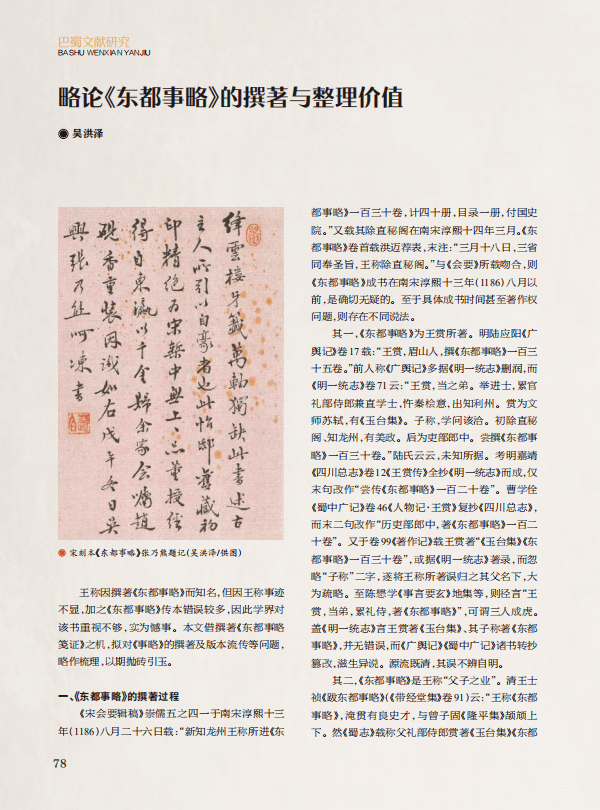 巴蜀文献研究
BA SHU WENXIAN YANJIU
略论《东都事略》的撰著与整理价值
◉ 吴洪泽
绛云楼牙籤万轴独缺此书述古
主人所引以自豪者也此怡邸旧藏初
印精绝为宋椠中无上上品董授经
得自东瀛以千金归余家会嘱赵
砚香重装因识如右戊午冬日吴
兴张乃熊呵冻书
◉ 宋刻本《东都事略》张乃熊题记(吴洪泽/供图)
王称因撰著《东都事略》而知名,但因王称事迹
不显,加之《东都事略》传本错误较多,因此学界对
该书重视不够,实为憾事。本文借撰著《东都事略
笺证》之机,拟对《事略》的撰著及版本流传等问题,
略作梳理,以期抛砖引玉。
一、《东都事略》的撰著过程
《宋会要辑稿》崇儒五之四一于南宋淳熙十三
年(1186)八月二十六日载:“新知龙州王称所进《东
都事略》一百三十卷,计四十册,目录一册,付国史
院。”又载其除直秘阁在南宋淳熙十四年三月。《东
都事略》卷首载洪迈荐表,末注:“三月十八日,三省
同奉圣旨,王称除直秘阁。”与《会要》所载吻合,则
《东都事略》成书在南宋淳熙十三年(1186)八月以
前,是确切无疑的。至于具体成书时间甚至著作权
问题,则存在不同说法。
其一,《东都事略》为王赏所著。明陆应阳《广
舆记》卷17载:“王赏,眉山人,撰《东都事略》一百三
十五卷。”前人称《广舆记》多据《明一统志》删润,而
《明一统志》卷71云:“王赏,当之弟。举进士,累官
礼部侍郎兼直学士,忤秦桧意,出知利州。赏为文
师苏轼,有《玉台集》。子称,学问该洽。初除直秘
阁,知龙州,有美政。后为吏部郎中。尝撰《东都事
略》一百三十卷。”陆氏云云,未知所据。考明嘉靖
《四川总志》卷12《王赏传》全抄《明一统志》而成,仅
末句改作“尝传《东都事略》一百二十卷”。曹学佺
《蜀中广记》卷46《人物记·王赏》复抄《四川总志》,
而末二句改作“历吏部郎中,著《东都事略》一百二
十卷”。又于卷99《著作记》载王赏著“《玉台集》《东
都事略》一百三十卷”,或据《明一统志》著录,而忽
略“子称”二字,遂将王称所著误归之其父名下,大
为疏略。至陈懋学《事言要玄》地集等,则径言“王
赏,当弟,累礼侍,著《东都事略》”,可谓三人成虎。
盖《明一统志》言王赏著《玉台集》、其子称著《东都
事略》,并无错误,而《广舆记》《蜀中广记》诸书转抄
篡改,滋生异说。源流既清,其误不辨自明。
其二,《东都事略》是王称“父子之业”。清王士
祯《跋东都事略》(《带经堂集》卷91)云:“王称《东都
事略》,淹贯有良史才,与曾子固《隆平集》颉颃上
下。然《蜀志》载称父礼部侍郎赏著《玉台集》《东都
78